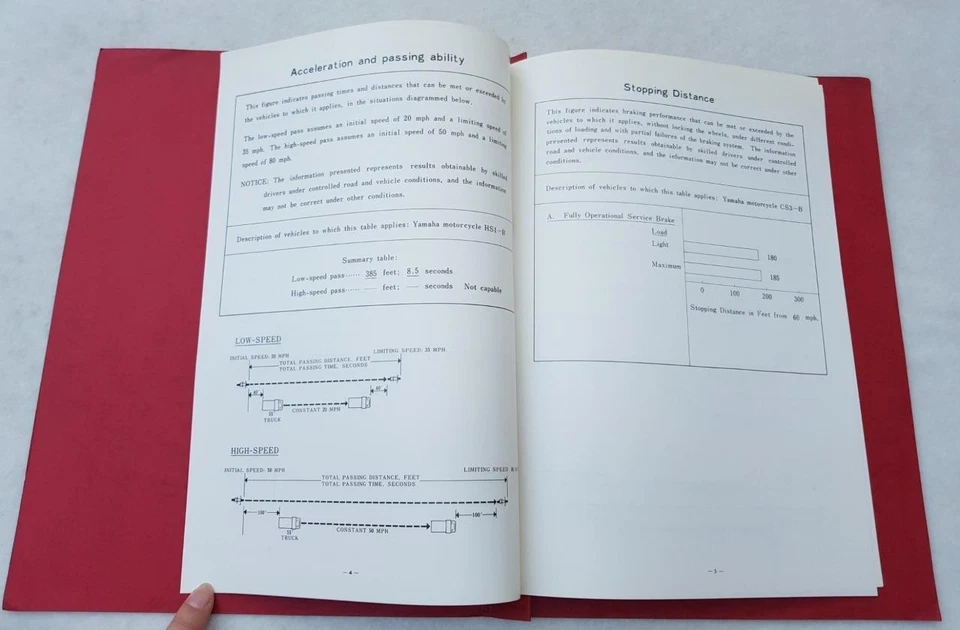 Acceleration and passing ability
This figure indicates passing times and distances that can be met or exceeded by
the vehicles to which it applies, in the situations diagrammed below.
The low-speed pass assumes an initial speed of 20 mph and a limiting speed of
35 mph. The high-speed pass assumes an initial speed of 50 mph and a limiting
speed of 80 mph.
NOTICE: The information presented represents results obtainable by skilled
drivers under controlled road and vehicle conditions, and the information
may not be correct under other conditions.
Description of vehicles to which this table applies: Yamaha motorcycle HS1-B
Summary table:
Low-speed pass...... 385 feet; 8.5 seconds
High-speed pass...... — feet; — seconds Not capable
LOW-SPEED
INITIAL SPEED: 20 MPH
LIMITING SPEED: 35 MPH
TOTAL PASSING DISTANCE, FEET
TOTAL PASSING TIME, SECONDS
40'
40'
55'
TRUCK
CONSTANT 20 MPH
HIGH-SPEED
INITIAL SPEED: 50 MPH
LIMITING SPEED
TOTAL PASSING DISTANCE, FEET
TOTAL PASSING TIME, SECONDS
100'
100'
55'
TRUCK
CONSTANT 50 MPH
—4—
Stopping Distance
This figure indicates braking performance that can be met or exceeded by the
vehicles to which it applies, without locking the wheels, under different condi-
tions of loading and with partial failures of the braking system. The information
presented represents results obtainable by skilled drivers under controlled
road and vehicle conditions, and the information may not be correct under other
conditions.
Description of vehicles to which this table applies: Yamaha motorcycle CS3-B
A. Fully Operational Service Brake
Load
Light
180
Maximum
185
0 100 200 300
Stopping Distance in Feet from 60 mph.
—5—